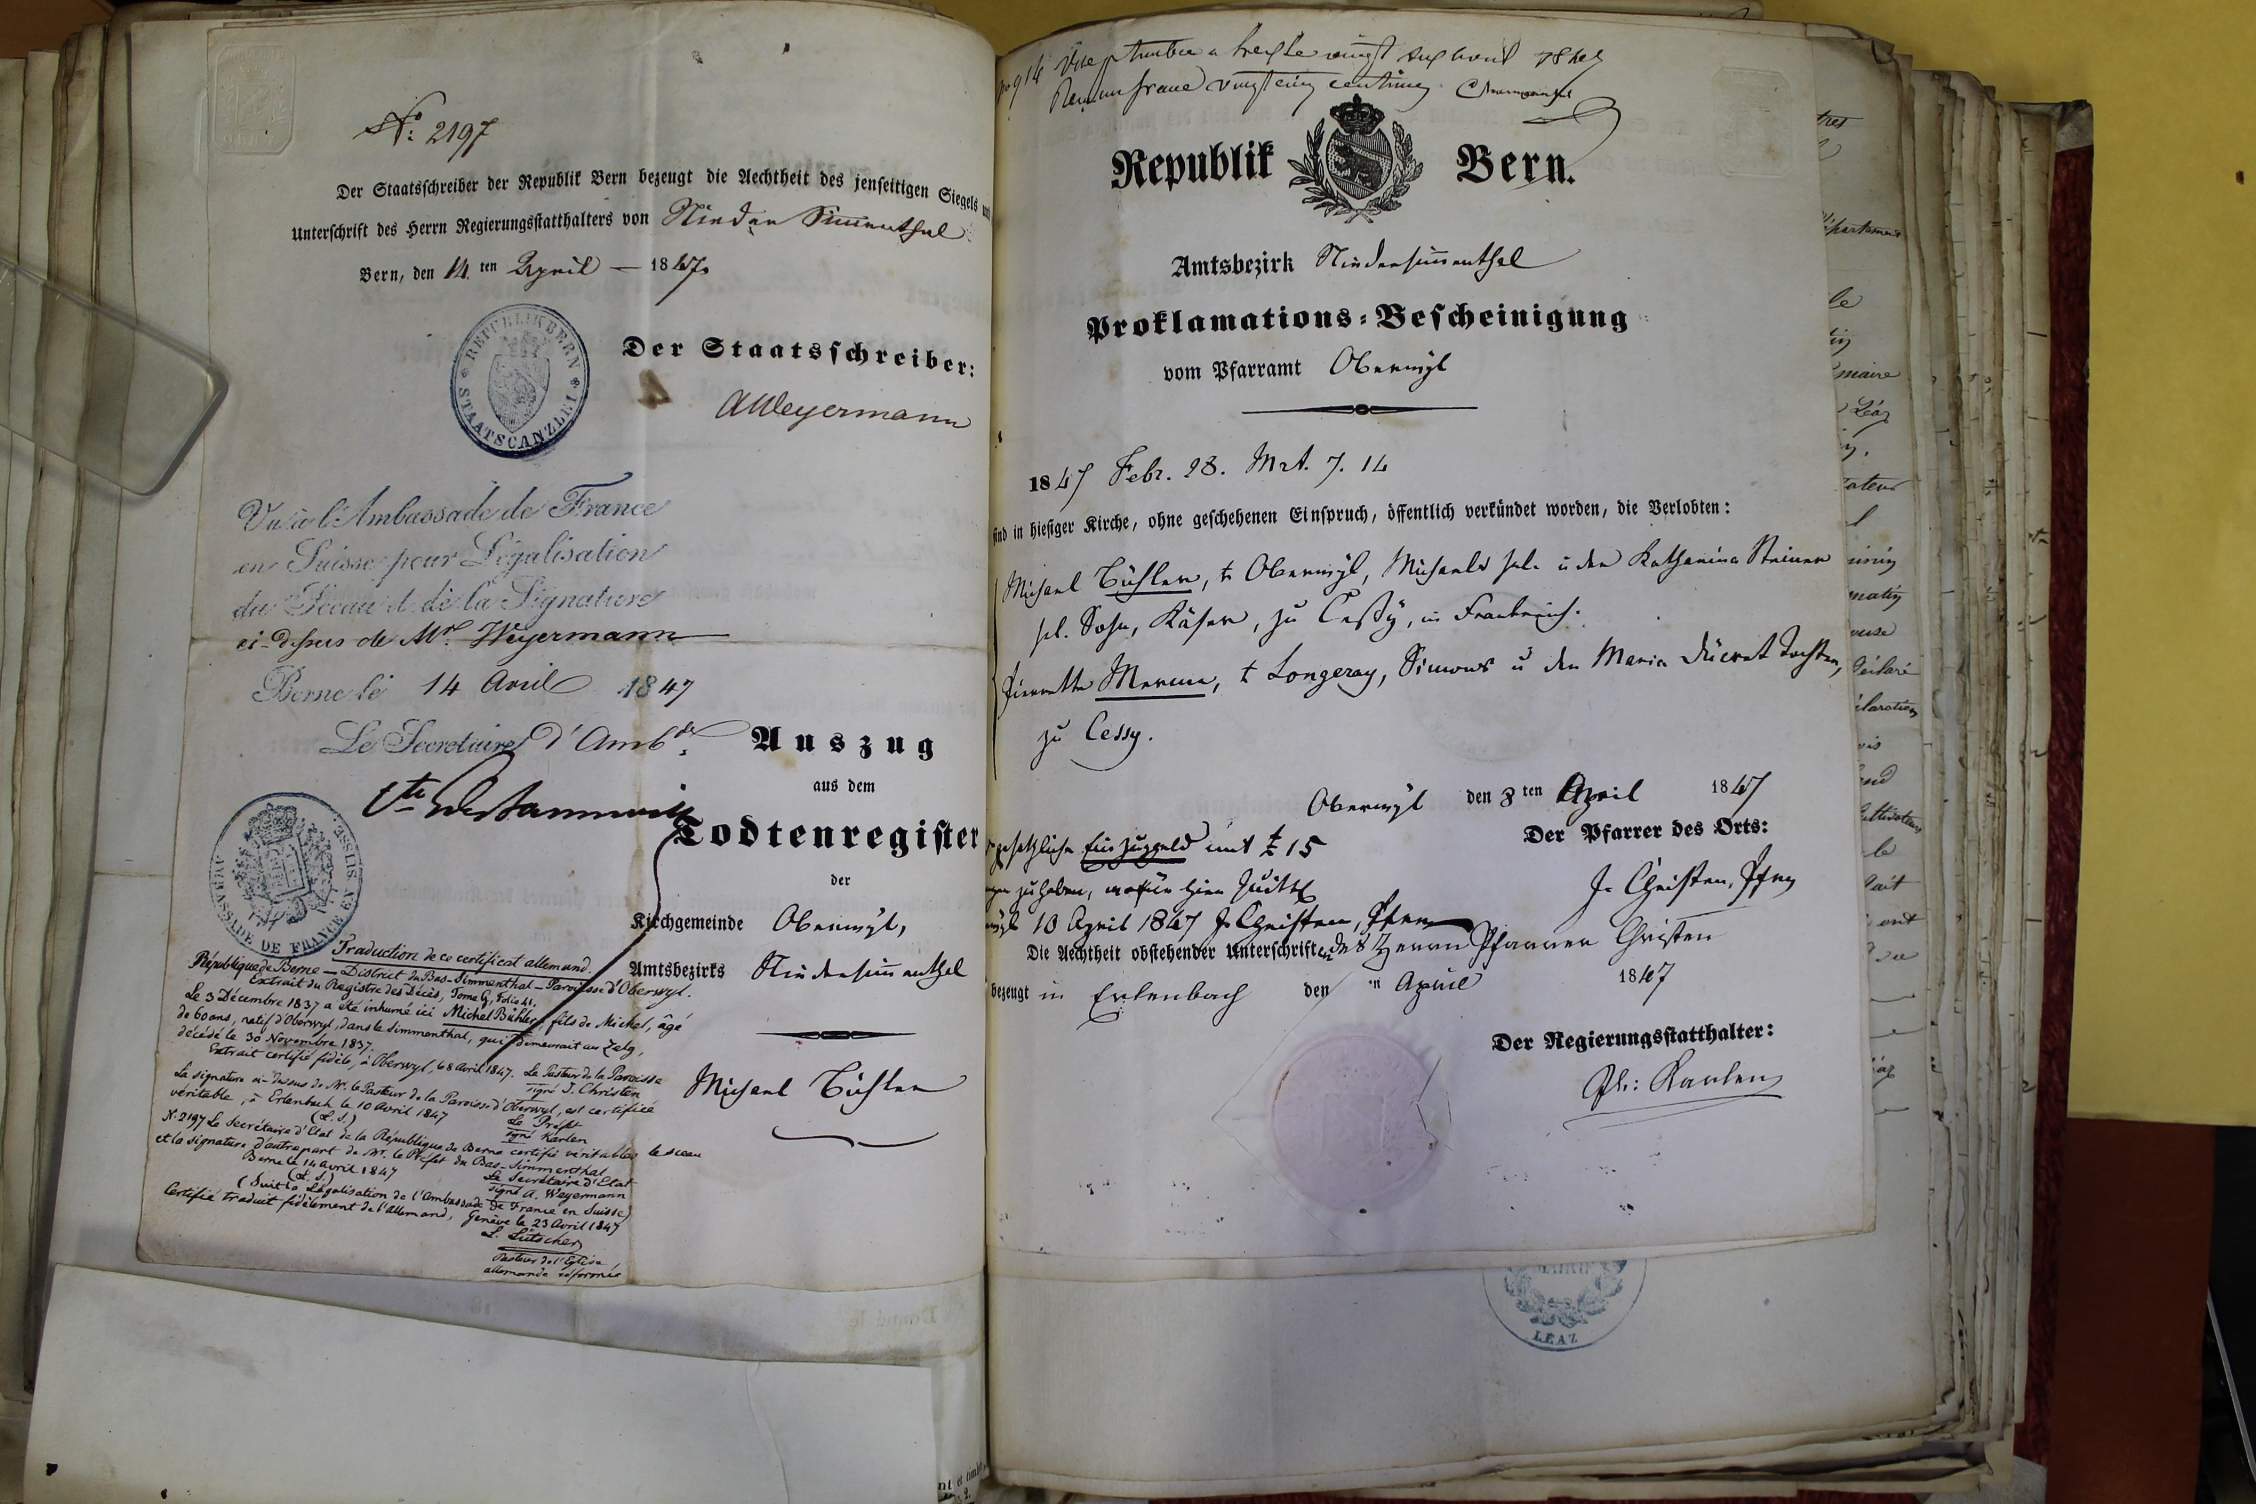 N.º 2197
Der Staatsschreiber der Republik Bern bezeugt die Aechtheit des jenseitigen Siegels und
Unterschrift des Herrn Regierungsstatthalters von Nieder Simenthal
Bern, den 14 ten April — 1847.
REPUBLIK BERN
STAATSCANZLEI
Der Staatsschreiber:
AWeyermann
Vu à l'Ambassade de France
en Suisse pour Légalisation
du Sceau et de la Signature
ci-dessus de Mr. Weyermann
Berne le 14 Avril 1847
Le Secretaire d'Ambde.
AMBASSADE DE FRANCE EN SUISSE
Auszug
aus dem
Todtenregister
der
Kirchgemeinde Oberwyl,
Amtsbezirks Niedersimenthal
Michael Bühler
Traduction de ce certificat allemand.
République de Berne — District du Bas-Simmenthal — Paroisse d'Oberwyl.
Extrait du Registre des Décès, Tome G, Folio 41.
Le 3 Décembre 1837 a été inhumé ici Michel Bühler, fils de Michel, âgé
de 60 ans, natif d'Oberwyl, dans le Simmenthal, qui demeurait au Zelg,
décédé le 30 Novembre 1837.
Extrait certifié fidèle, à Oberwyl, le 8 Avril 1847. Le Pasteur de la Paroisse
signé J. Christen
La signature ci-dessus de Mr. le Pasteur de la Paroisse d'Oberwyl, est certifiée
véritable, à Erlenbach le 10 Avril 1847
(L.S.) Le Préfet
signé Karlen
N. 2197 Le Secrétaire d'Etat de la République de Berne certifie véritables le sceau
et la signature d'autre part de Mr. le Préfet du Bas-Simmenthal
Berne le 14 Avril 1847
(L.S.) Le Secrétaire d'Etat
signé A. Weyermann
(Suit la Légalisation de l'Ambassade de France en Suisse)
Certifié traduit fidèlement de l'Allemand, Genève le 23 Avril 1847
L. Lütscher
Pasteur de l'Eglise
allemande réformée
Republik Bern.
Amtsbezirk Niedersimenthal
Proklamations-Bescheinigung
vom Pfarramt Oberwyl
1847 Febr. 28. Mrt. 7. 14
sind in hiesiger Kirche, ohne geschehenen Einspruch, öffentlich verkündet worden, die Verlobten:
Michael Bühler, v. Oberwyl, Michaels sel. u der Katharina Steiner
sel. Sohn, Käser, zu Cessy, in Frankreich.
Pierrette Merme, v Longeray, Simons u der Maria Ducret Tochter,
zu Cessy.
Oberwyl den 8 ten April 1847
Der Pfarrer des Orts:
J. Christen, Pfrr
gesetzliche Einzuggeld mit 15
zu haben, wofür hier
10 April 1847 J. Christen, Pfrr
Die Aechtheit obstehender Unterschriften des Herrn Pfarrer Christen
bezeugt in Erlenbach den April 1847
Der Regierungsstatthalter:
Karlen
MAIRIE
LEAZ